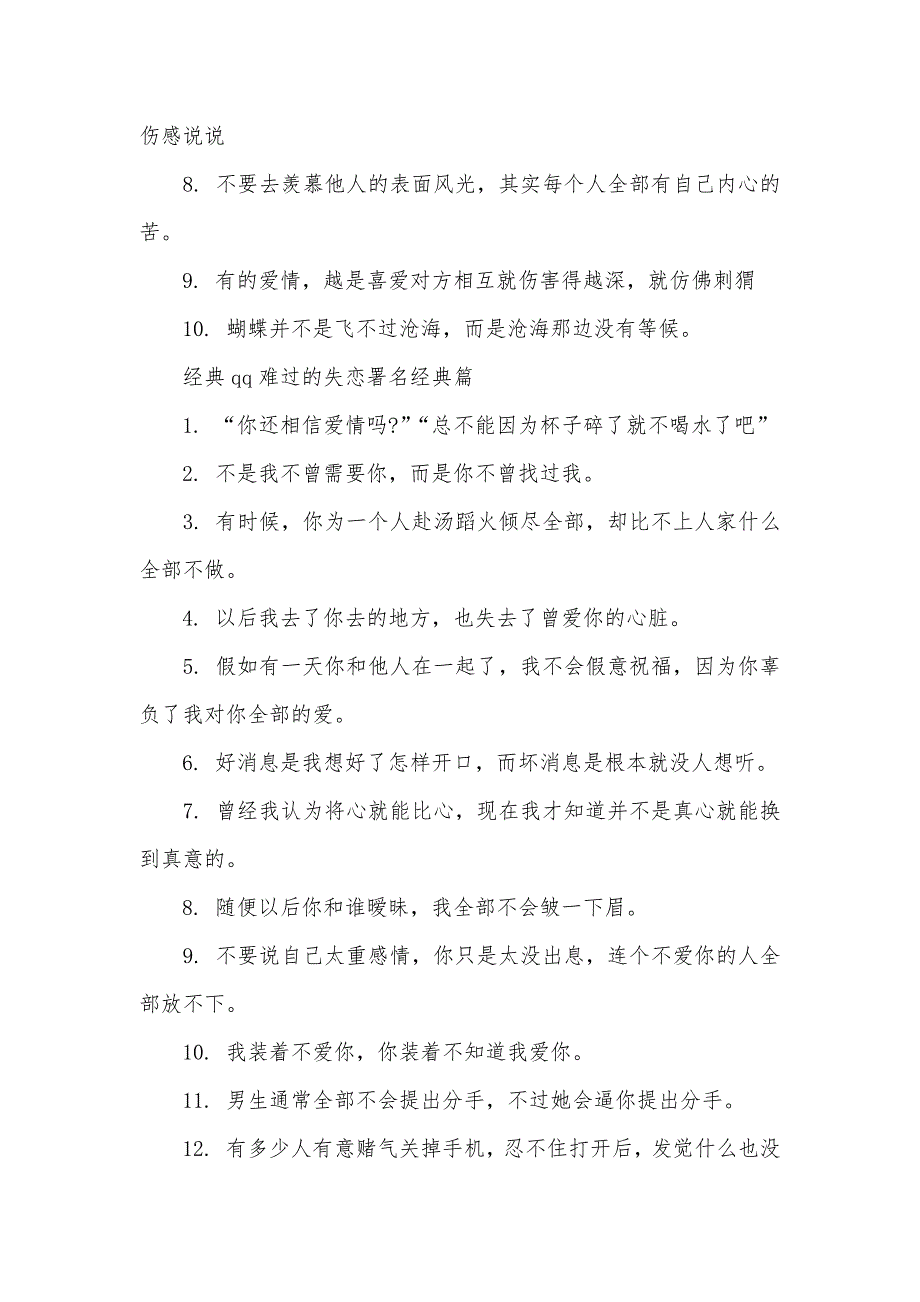 伤感说说
8. 不要去羡慕他人的表面风光，其实每个人全部有自己内心的
苦。
9. 有的爱情，越是喜爱对方相互就伤害得越深，就仿佛刺猬
10. 蝴蝶并不是飞不过沧海，而是沧海那边没有等候。
经典 qq 难过的失恋署名经典篇
1. “你还相信爱情吗?”“总不能因为杯子碎了就不喝水了吧”
2. 不是我不曾需要你，而是你不曾找过我。
3. 有时候，你为一个人赴汤蹈火倾尽全部，却比不上人家什么
全部不做。
4. 以后我去了你去的地方，也失去了曾爱你的心脏。
5. 假如有一天你和他人在一起了，我不会假意祝福，因为你辜
负了我对你全部的爱。
6. 好消息是我想好了怎样开口，而坏消息是根本就没人想听。
7. 曾经我认为将心就能比心，现在我才知道并不是真心就能换
到真意的。
8. 随便以后你和谁暧昧，我全部不会皱一下眉。
9. 不要说自己太重感情，你只是太没出息，连个不爱你的人全
部放不下。
10. 我装着不爱你，你装着不知道我爱你。
11. 男生通常全部不会提出分手，不过她会逼你提出分手。
12. 有多少人有意赌气关掉手机，忍不住打开后，发觉什么也没